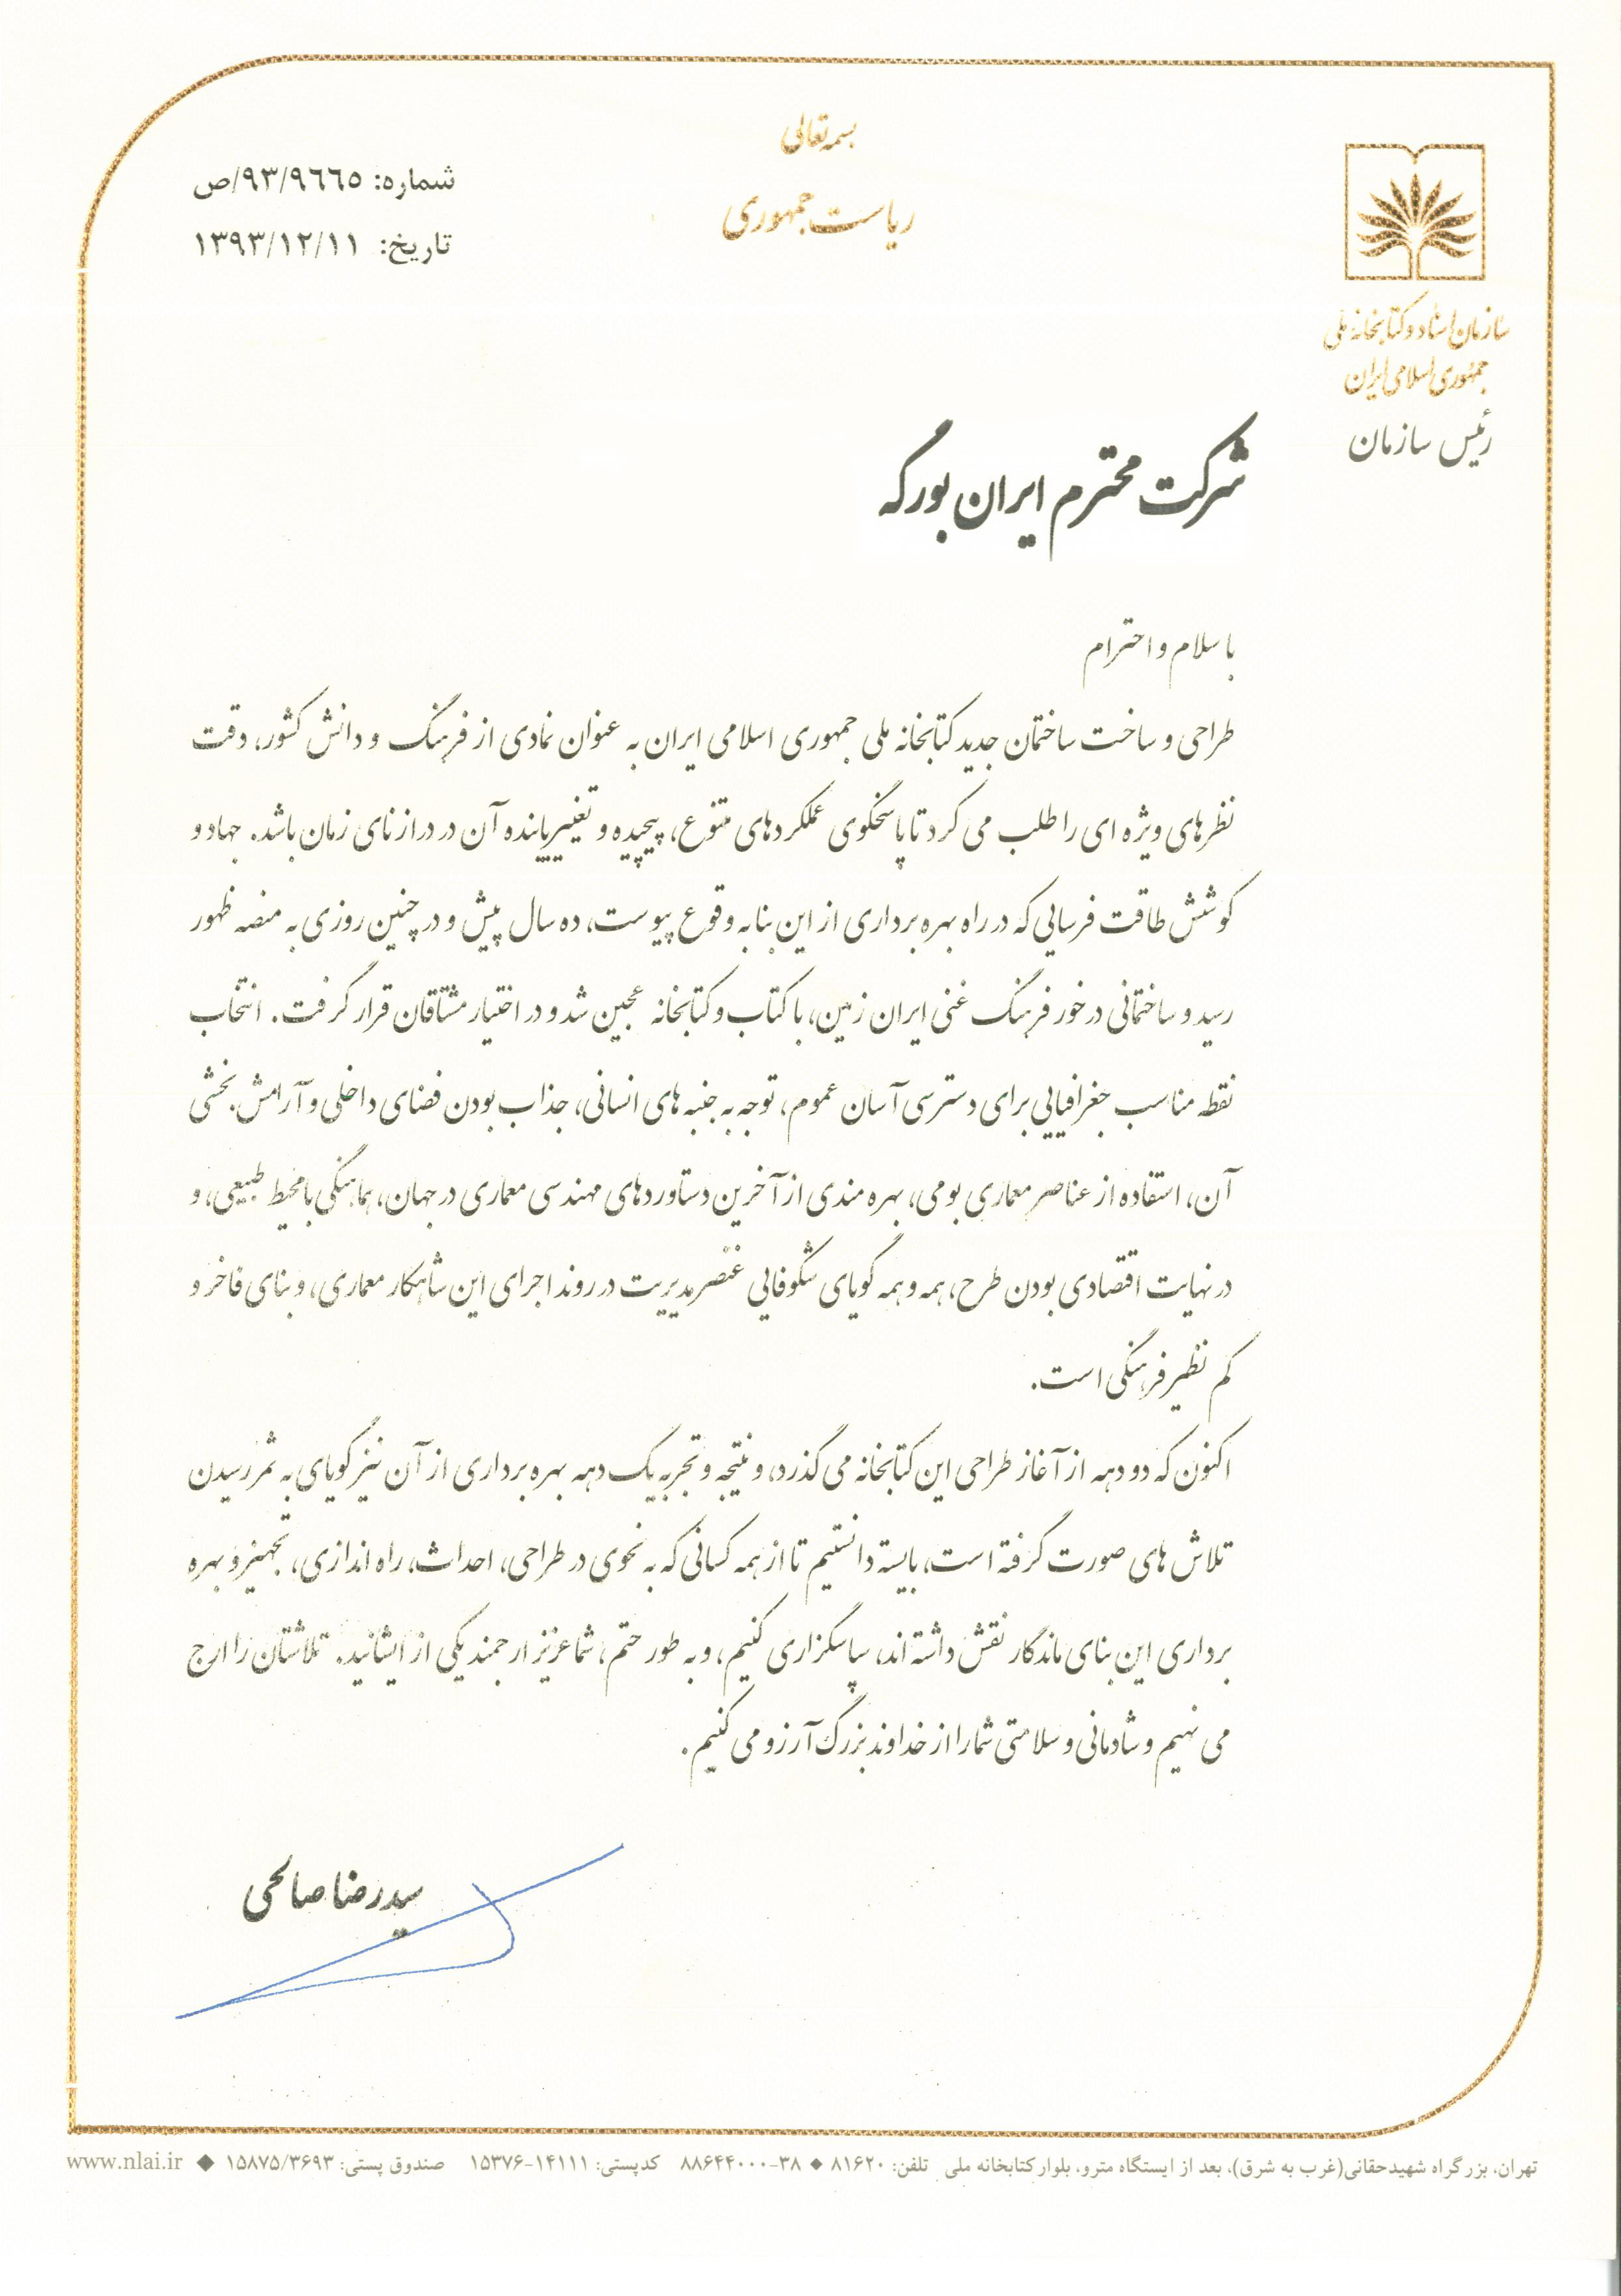 بسمه تعالی
ریاست جمهوری
شماره: ۹۳/۹٦٦٥/ص
تاریخ: ۱۳۹۳/۱۲/۱۱
سازمان اسناد و کتابخانه ملی
جمهوری اسلامی ایران
رئیس سازمان
شرکت محترم ایران بورگه
با سلام و احترام
طراحی و ساخت ساختمان جدید کتابخانه ملی جمهوری اسلامی ایران به عنوان نمادی از فرهنگ و دانش کشور، دقت
نظرهای ویژه ای را طلب می کرد تا پاسخگوی عملکردهای متنوع، پیچیده و تغییریابنده آن در درازنای زمان باشد. جهاد و
کوشش طاقت فرسایی که در راه بهره برداری از این بنا به وقوع پیوست، ده سال پیش و در چنین روزی به منصه ظهور
رسید و ساختمانی درخور فرهنگ غنی ایران زمین، با کتاب و کتابخانه عجین شد و در اختیار مشتاقان قرار گرفت. انتخاب
نقطه مناسب جغرافیایی برای دسترسی آسان عموم، توجه به جنبه های انسانی، جذاب بودن فضای داخلی و آرامش بخشی
آن، استفاده از عناصر معماری بومی، بهره مندی از آخرین دستاوردهای مهندسی معماری در جهان، هماهنگی با محیط طبیعی، و
در نهایت اقتصادی بودن طرح، همه و همه گویای شکوفایی عنصر مدیریت در روند اجرای این شاهکار معماری، و بنای فاخر و
کم نظیر فرهنگی است.
اکنون که دو دهه از آغاز طراحی این کتابخانه می گذرد، و نتیجه و تجربه یک دهه بهره برداری از آن نیز گویای به ثمر رسیدن
تلاش های صورت گرفته است، بایسته دانستیم تا از همه کسانی که به نحوی در طراحی، احداث، راه اندازی، تجهیز و بهره
برداری این بنای ماندگار نقش داشته اند، سپاسگزاری کنیم، و به طور حتم، شما عزیز ارجمند یکی از ایشانید. تلاشتان را ارج
می نهیم و شادمانی و سلامتی شما را از خداوند بزرگ آرزو می کنیم.
سیدرضا صالحی
تهران، بزرگراه شهیدحقانی(غرب به شرق)، بعد از ایستگاه مترو، بلوار کتابخانه ملی تلفن: ۸۱۶۲۰ ◆ ۳۸-۸۸۶۴۴۰۰۰ کدپستی: ۱۴۱۱۱-۱۵۳۷۶ صندوق پستی: ۱۵۸۷۵/۳۶۹۳ ◆ www.nlai.ir